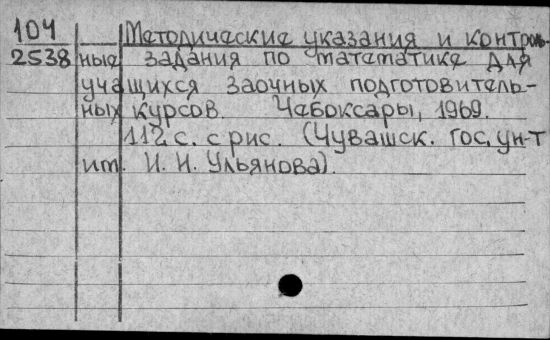 104 Методические указания и контроль-
2538 ные задания по математике для
учащихся заочных подготовитель-
ных курсов. Чебоксары, 1969.
112 с. с рис. (Чувашск. гос. ун-т
им. И. Н. Ульянова).